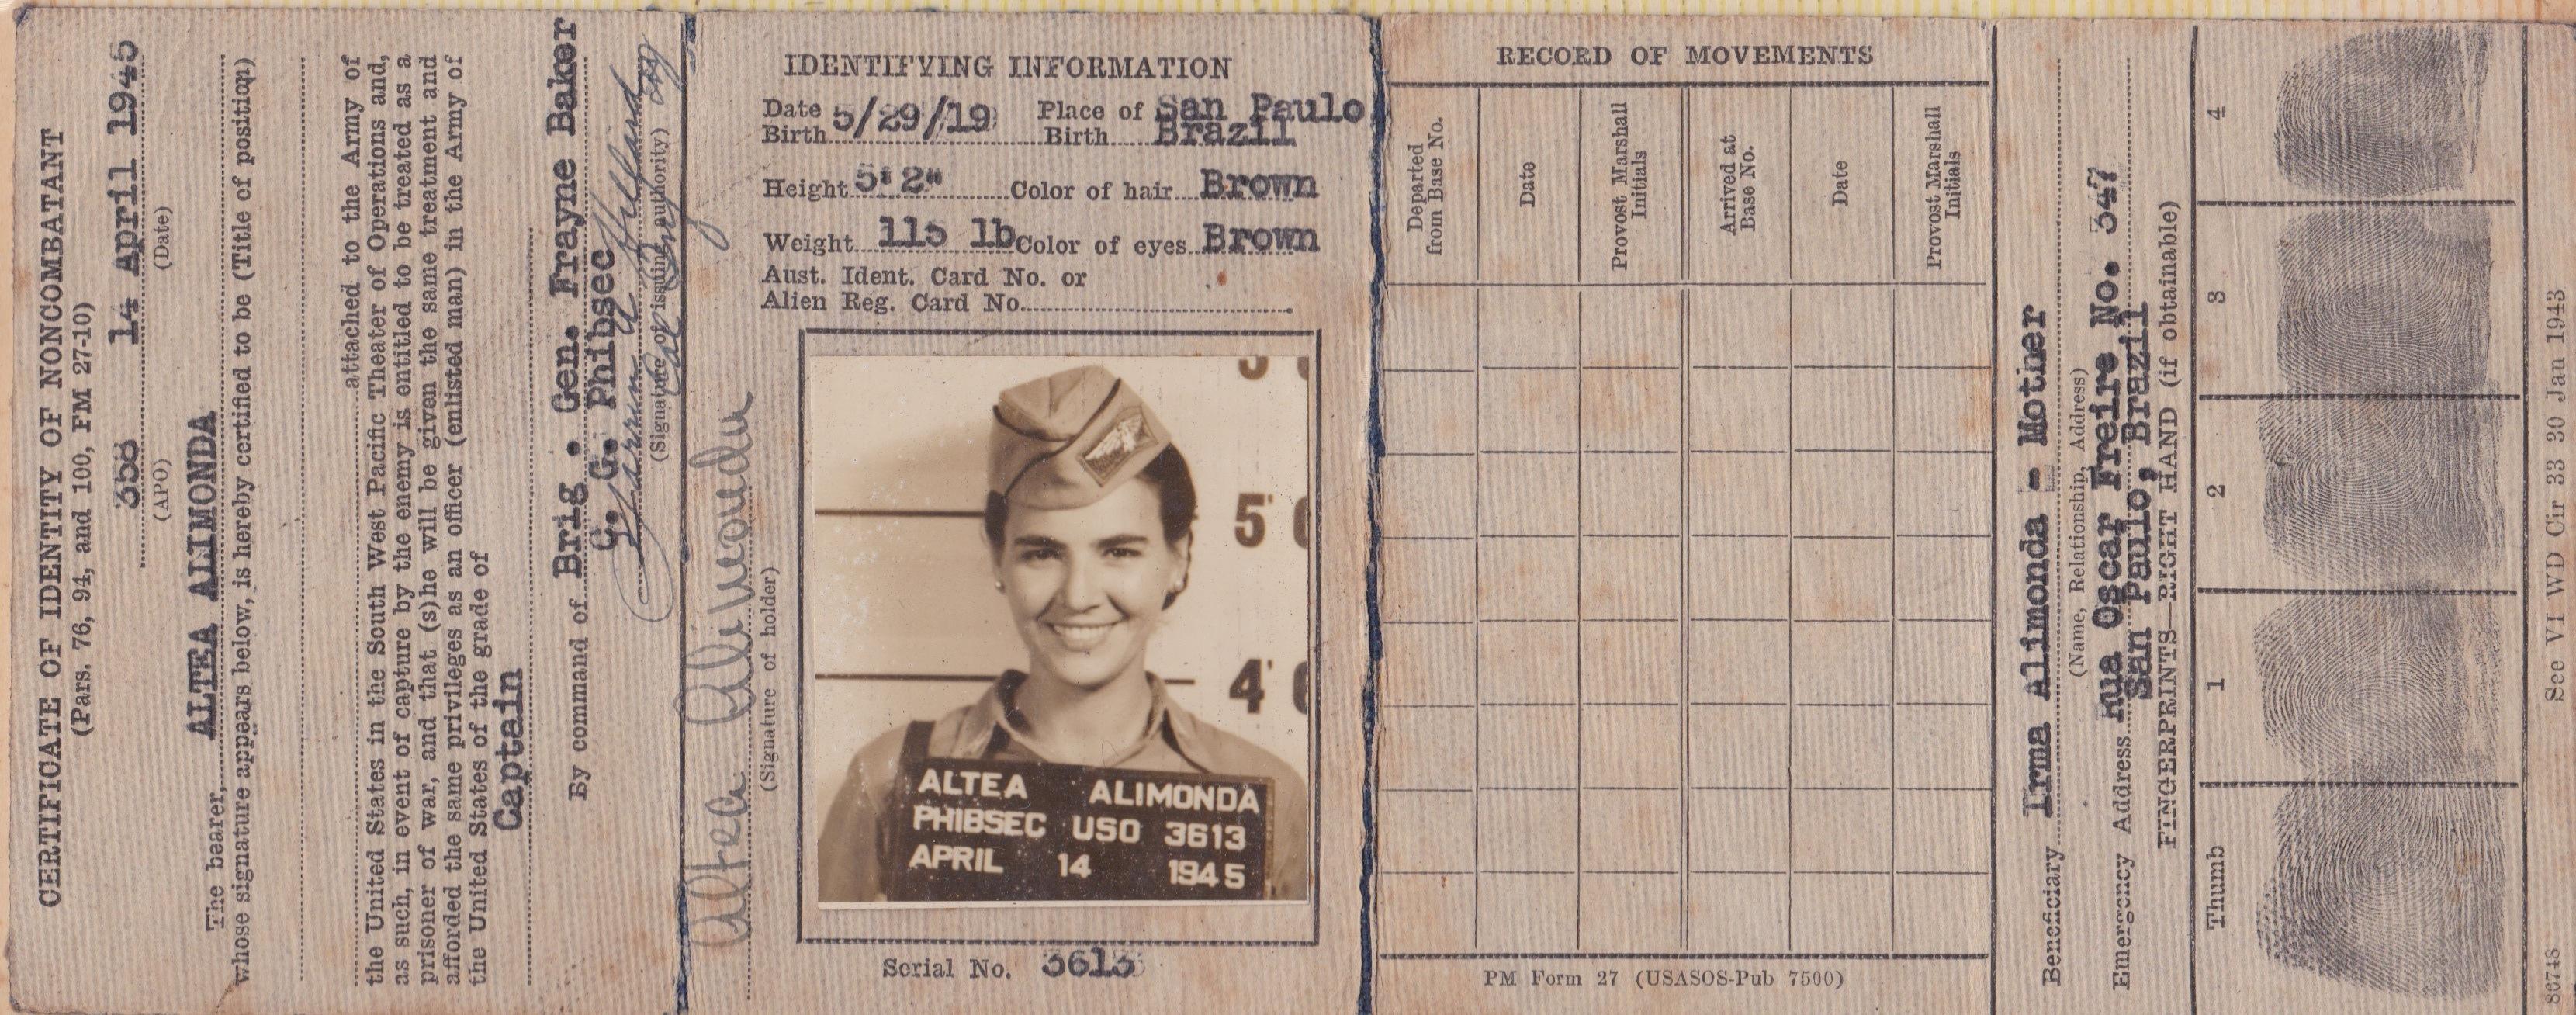 CERTIFICATE OF IDENTITY OF NONCOMBATANT
(Pars. 76, 94, and 100, FM 27-10)
358 14 April 1945
(APO) (Date)
The bearer, ALTEA ALIMONDA
whose signature appears below, is hereby certified to be (Title of position)
attached to the Army of
the United States in the South West Pacific Theater of Operations and,
as such, in event of capture by the enemy is entitled to be treated as a
prisoner of war, and that (s)he will be given the same treatment and
afforded the same privileges as an officer (enlisted man) in the Army of
the United States of the grade of
Captain
By command of Brig. Gen. Frayne Baker
C. G. Phibsec
(Signature of issuing authority)
Altea Alimonda
(Signature of holder)
IDENTIFYING INFORMATION
Date Birth 5/29/19 Place of Birth San Paulo Brazil
Height 5'2" Color of hair Brown
Weight 115 lb Color of eyes Brown
Aust. Ident. Card No. or
Alien Reg. Card No.
5'
4'
ALTEA ALIMONDA
PHIBSEC USO 3613
APRIL 14 1945
Serial No. 3613
RECORD OF MOVEMENTS
Departed from Base No.
Date
Provost Marshall Initials
Arrived at Base No.
Date
Provost Marshall Initials
PM Form 27 (USASOS-Pub 7500)
Beneficiary Irma Alimonda - Mother
(Name, Relationship, Address)
Emergency Address Rua Oscar Freire No. 347
San Paulo, Brazil
FINGERPRINTS—RIGHT HAND (if obtainable)
Thumb 1 2 3 4
See VI WD Cir 33 30 Jan 1943